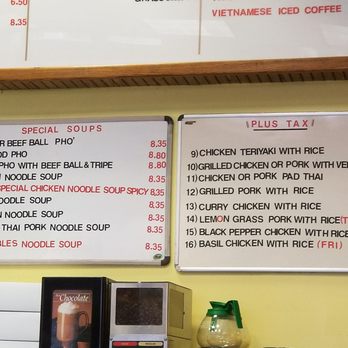 6.50
8.35
VIETNAMESE ICED COFFEE
SPECIAL SOUPS
R BEEF BALL PHO' 8.35
OD PHO 8.80
PHO WITH BEEF BALL & TRIPE 8.80
N NOODLE SOUP 8.35
SPECIAL CHICKEN NOODLE SOUP SPICY 8.35
NOODLE SOUP 8.35
N NOODLE SOUP 8.35
THAI PORK NOODLE SOUP 8.35
BLES NOODLE SOUP 8.35
PLUS TAX
9) CHICKEN TERIYAKI WITH RICE
10) GRILLED CHICKEN OR PORK WITH VE
11) CHICKEN OR PORK PAD THAI
12) GRILLED PORK WITH RICE
13) CURRY CHICKEN WITH RICE
14) LEMON GRASS PORK WITH RICE (T
15) BLACK PEPPER CHICKEN WITH RIC
16) BASIL CHICKEN WITH RICE (FRI)
Chocolate